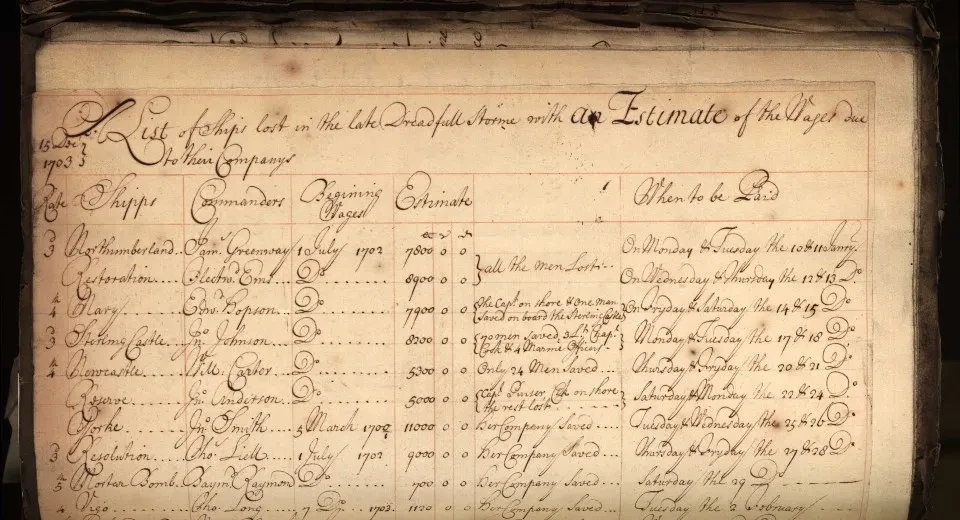 15 Dec:
1703
A List of Ships lost in the late Dreadfull Storme with an Estimate of the Wages due
to their Companys
Rate Shipps Commanders Begining Wages Estimate When to be Paid
3 Northumberland.. Jam: Greenway 1 July 1702 7800 0 0 On Monday & Tuesday the 10 & 11 Janry.
Restoration. Fleetwd. Ems... Do 8900 0 0 all the Men Lost On Wednesday & Thursday the 12 & 13 Do
4 Mary Edwd Hopson.. Do 7900 0 0 The Capt. on shore & One man Saved on board the Sterling Castle On Fryday & Saturday the 14 & 15 Do
3 Sterling Castle.. Jno. Johnson. Do 8200 0 0 70 men saved, 3d Capt. Cook & 4 Marine Officers Monday & Tuesday the 17 & 18 Do
4 Newcastle Will. Carter.. Do 5300 0 0 Only 24 Men Saved... Thursday & Fryday the 20 & 21 Do
Reserve. Jno. Anderson.. Do 5000 0 0 Capt. Purser, on shore the rest lost Saturday & Monday the 22 & 24 Do
Yorke Jno. Smith 5 March 11000 0 0 Her Company Saved Tuesday & Wednesday the 25 & 26 Do
3 Resolution. Tho. Liell.. 1 July 1702 9000 0 0 Her Company Saved... Thursday & Fryday the 27 & 28 Do
5 Mortar Bomb. Baym. Raymond Do 700 0 0 Her Company Saved.. Saturday the 29 Do
4 Vigo Tho. Long 7 Do 1703. 1120 0 0 Her Company Saved... Tuesday the 2 February